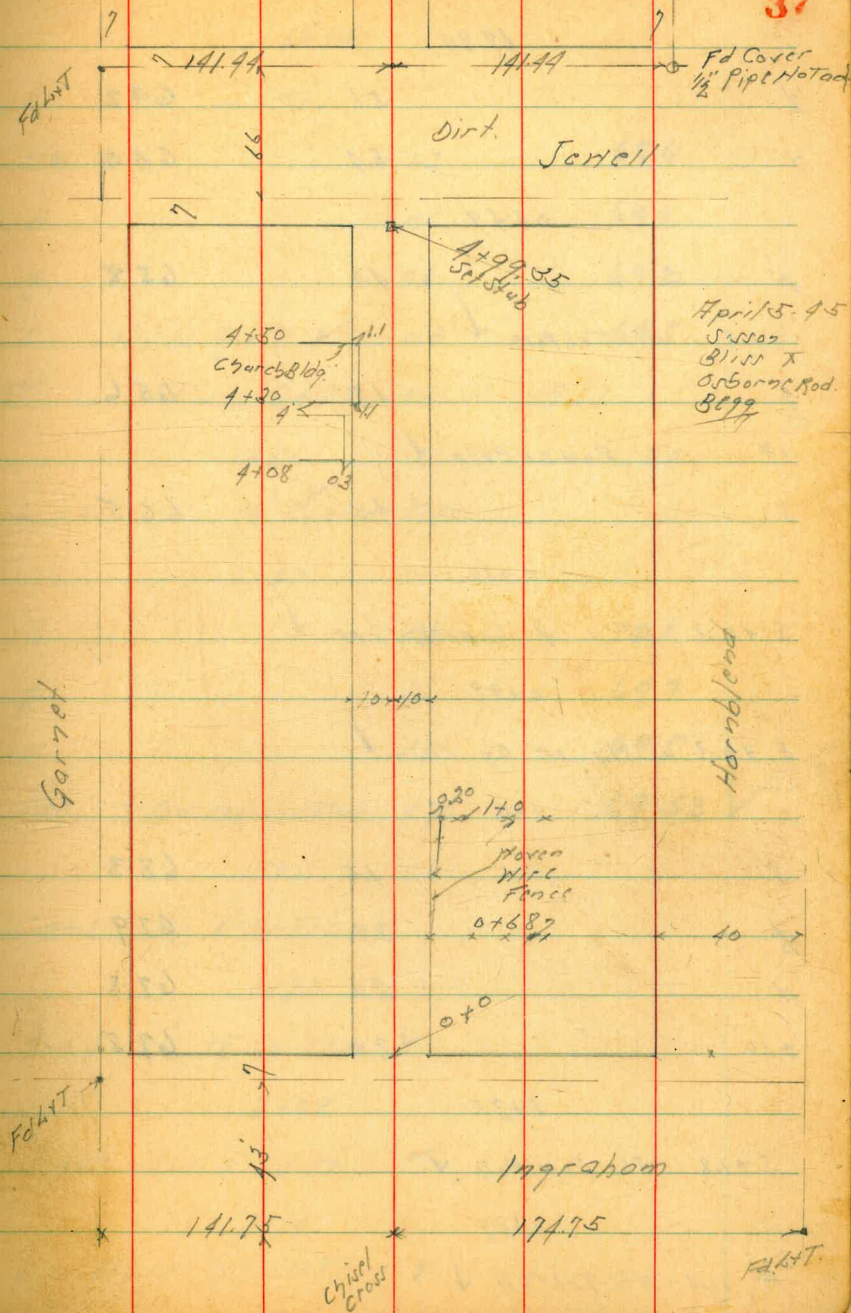 37
7
7
141.44
141.44
Fd Cover
1½" Pipe No Tack
Fd L+T
7
66
Dirt.
Jewell
7
4+99.35
Set Stub
April 5-45
Sisson
Bliss X
Osborne Rod.
Begg
4+50
1.1
Church Bldg.
4+20
1.1
4
4+08
03
Garnet
10
10
Hornblend
0.20
1+0
Woven
Wire
Fence
0+68
40
0+0
7
Fd L+T
43
Ingraham
141.75
174.75
Chisel
Cross
Fd. L+T.